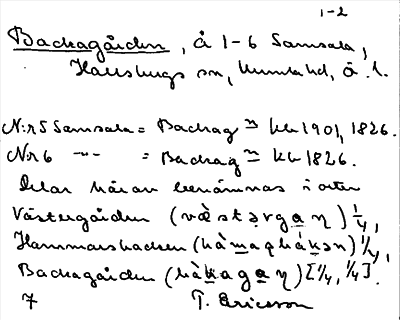 1-2
Backagården, å 1-6 Samsala,
Hallsbergs sn, Kumla hd, Ö. l.
N:r 5 Samsala = Backag~n kb 1901, 1826.
N:r 6 -"- = Backag~n kb 1826.
Delar härav benämnas i orten
Västergården (væ̀stərgaɳ) 1/4,
Hammarsbacken (hàmaʂbákən) 1/4,
Backagården (bàkagaɳ) [1/4, 1/4].
7 T. Ericsson